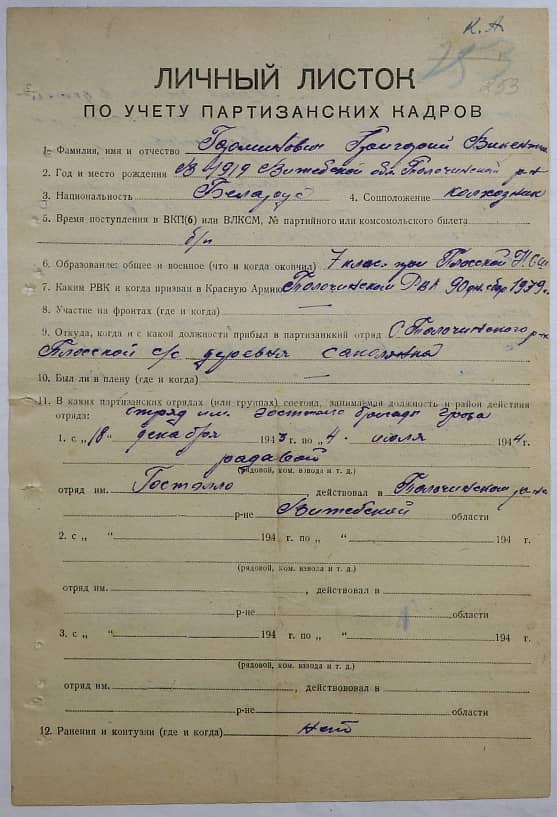 К. А
253
ЛИЧНЫЙ ЛИСТОК
ПО УЧЕТУ ПАРТИЗАНСКИХ КАДРОВ
1. Фамилия, имя и отчество Григорий
2. Год и место рождения В 1919 Витебской обл Толочинской р-н
3. Национальность Беларус 4. Соцположение колхозник
5. Время поступления в ВКП(б) или ВЛКСМ, № партийного или комсомольского билета
б/п
6. Образование: общее и военное (что и когда окончил) 7 клас. при Плоской Н.С.Ш
7. Каким РВК и когда призван в Красную Армию Толочинском РВК
8. Участие на фронтах (где и когда) —
9. Откуда, когда и с какой должности прибыл в партизанский отряд С Толочинского р-н
Плоской с/с деревья
10. Был ли в плену (где и когда) —
11. В каких партизанских отрядах (или группах) состоял, занимаемая должность и район действия
отряда: отряд им. Гостелло бригады Грова
1. с „18 декабря 1943 г. по „4 июля 1944 г.
радавой
(рядовой, ком. взвода и т. д.)
отряд им. Гостэлло, действовал в Толочинском р-не
р-не Витебской области
2. с „ “ 194 г. по „ “ 194 г.
(рядовой, ком. взвода и т. д.)
отряд им. , действовал в
р-не области
3. с „ “ 194 г. по „ “ 194 г.
(рядовой, ком. взвода и т. д.)
отряд им. , действововал в
р-не области
12. Ранения и контузии (где и когда) нет